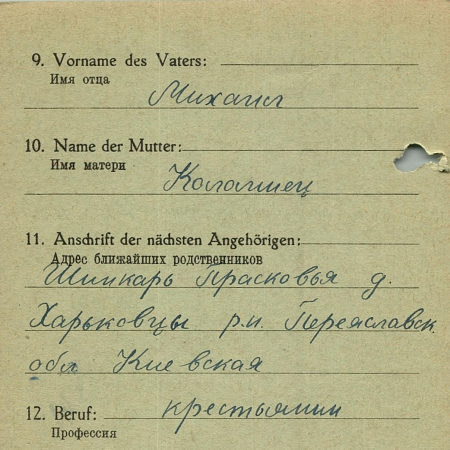 9. Vorname des Vaters:
Имя отца
Михаил
10. Name der Mutter:
Имя матери
Коломиец
11. Anschrift der nächsten Angehörigen:
Адрес ближайших родственников
Шинкарь Прасковья д.
Харьковцы р.н. Переяславск
обл Киевская
12. Beruf: крестьянин
Профессия